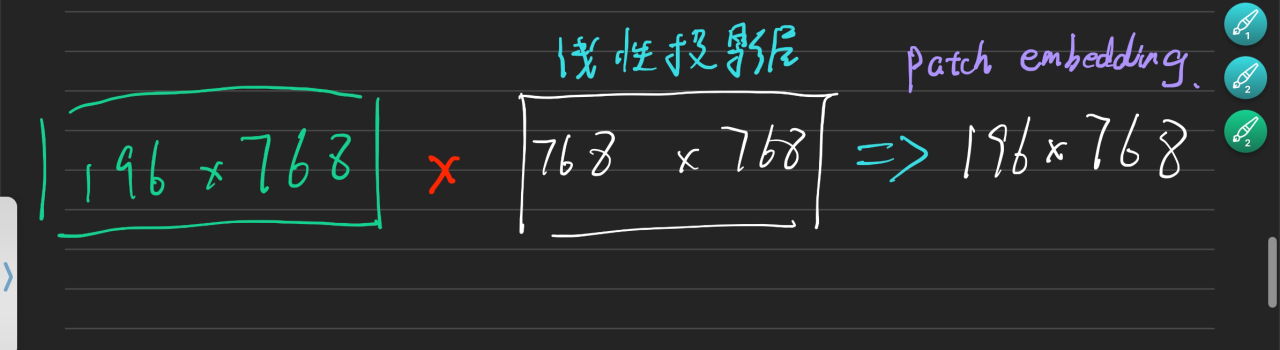 线性投影层 Patch embedding.
196 x 768 x 768 x 768 => 196 x 768
1
2
2